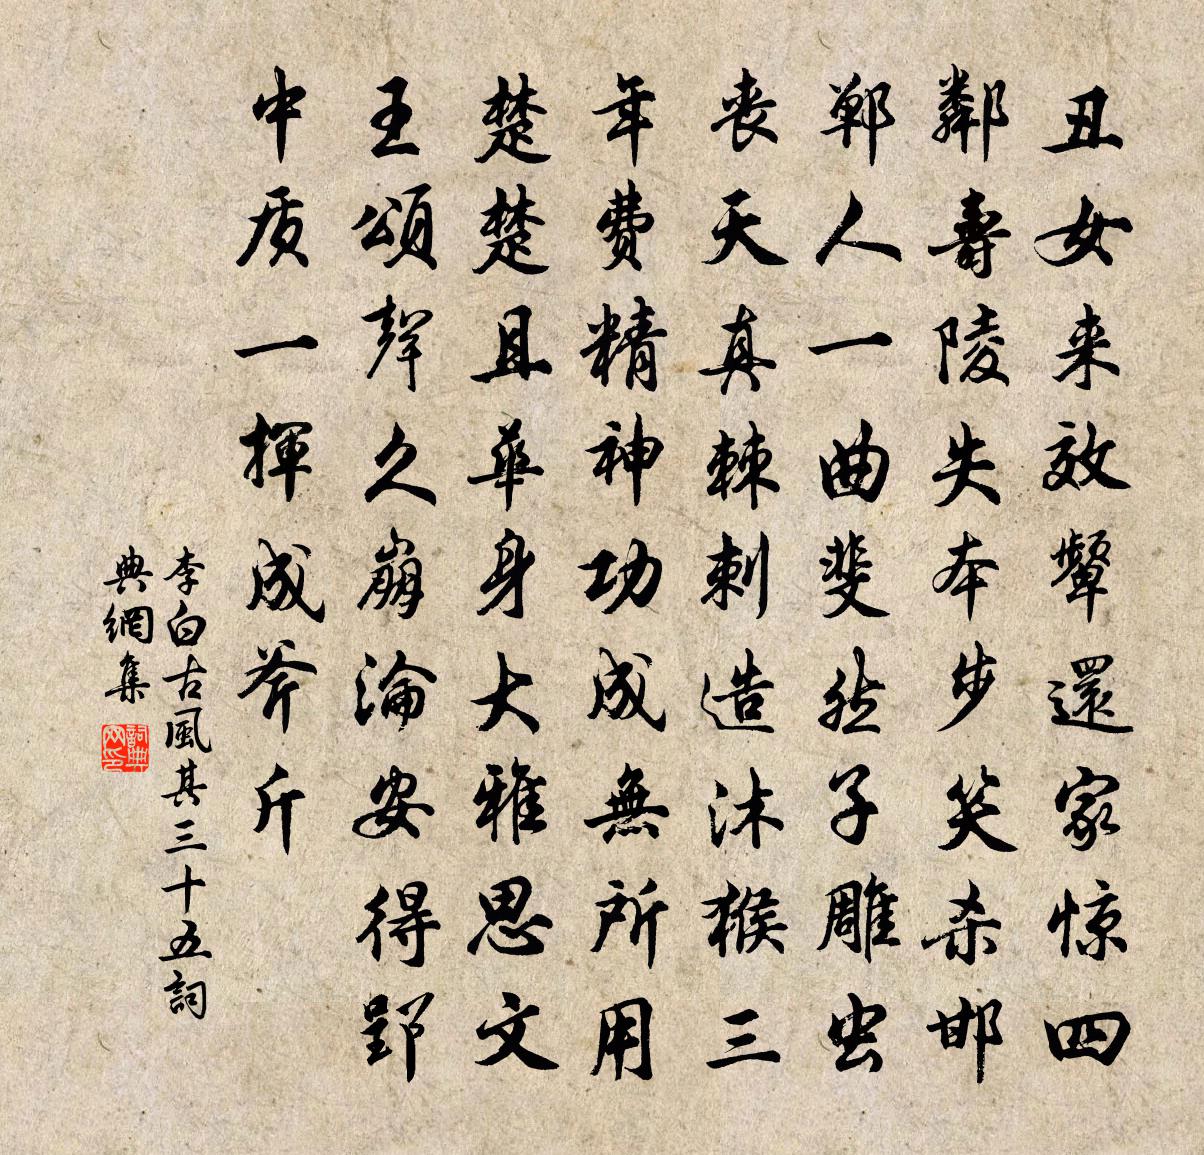 丑女来效顰還家惊四
鄰壽陵失本步笑杀邯
鄲人一曲斐然子雕虫
丧天真棘刺造沐猴三
年費精神功成無所用
楚楚且華身大雅思文
王頌聲久崩淪安得郢
中质一揮成斧斤
李白古風其三十五詞
典網集
詞典
网印